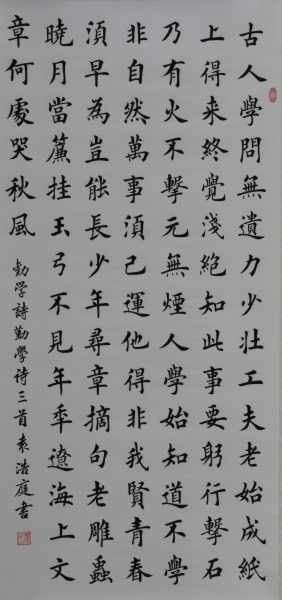 古人學問無遺力少壮工夫老始成紙
上得来終覺淺絶知此事要躬行擊石
乃有火不擊元無煙人學始知道不學
非自然萬事湏己運他得非我賢青春
湏早為豈能長少年尋章摘句老雕蟲
曉月當簾挂玉弓不見年秊遼海上文
章何處哭秋風
勸学詩勤學诗三首袁浩庭書